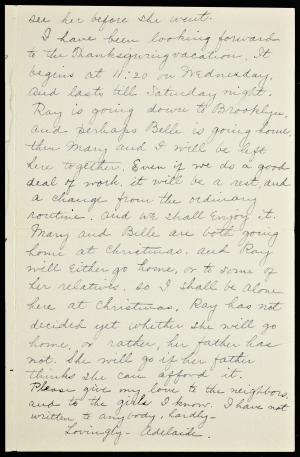 see her before she went.
I have been looking forward
to the Thanksgiving vacation. It
begins at 11:20 on Wednesday,
and lasts till Saturday night.
Ray is going down to Brooklyn,
and perhaps Belle is going home,
then Mary and I will be left
here together. Even if we do a good
deal of work, it will be a rest, and
a change from the ordinary
routine. and we shall enjoy it.
Mary and Belle are both going
home at Christmas. and Ray
will either go home, or to some of
her relatives. so I shall be alone
here at Christmas. Ray has not
decided yet whether she will go
home, or rather, her father has
not. She will go if her father
thinks she can afford it.
Please give my love to the neighbors,
and to the girls I know. I have not
written to anybody, hardly-
Lovingly- Adelaide.